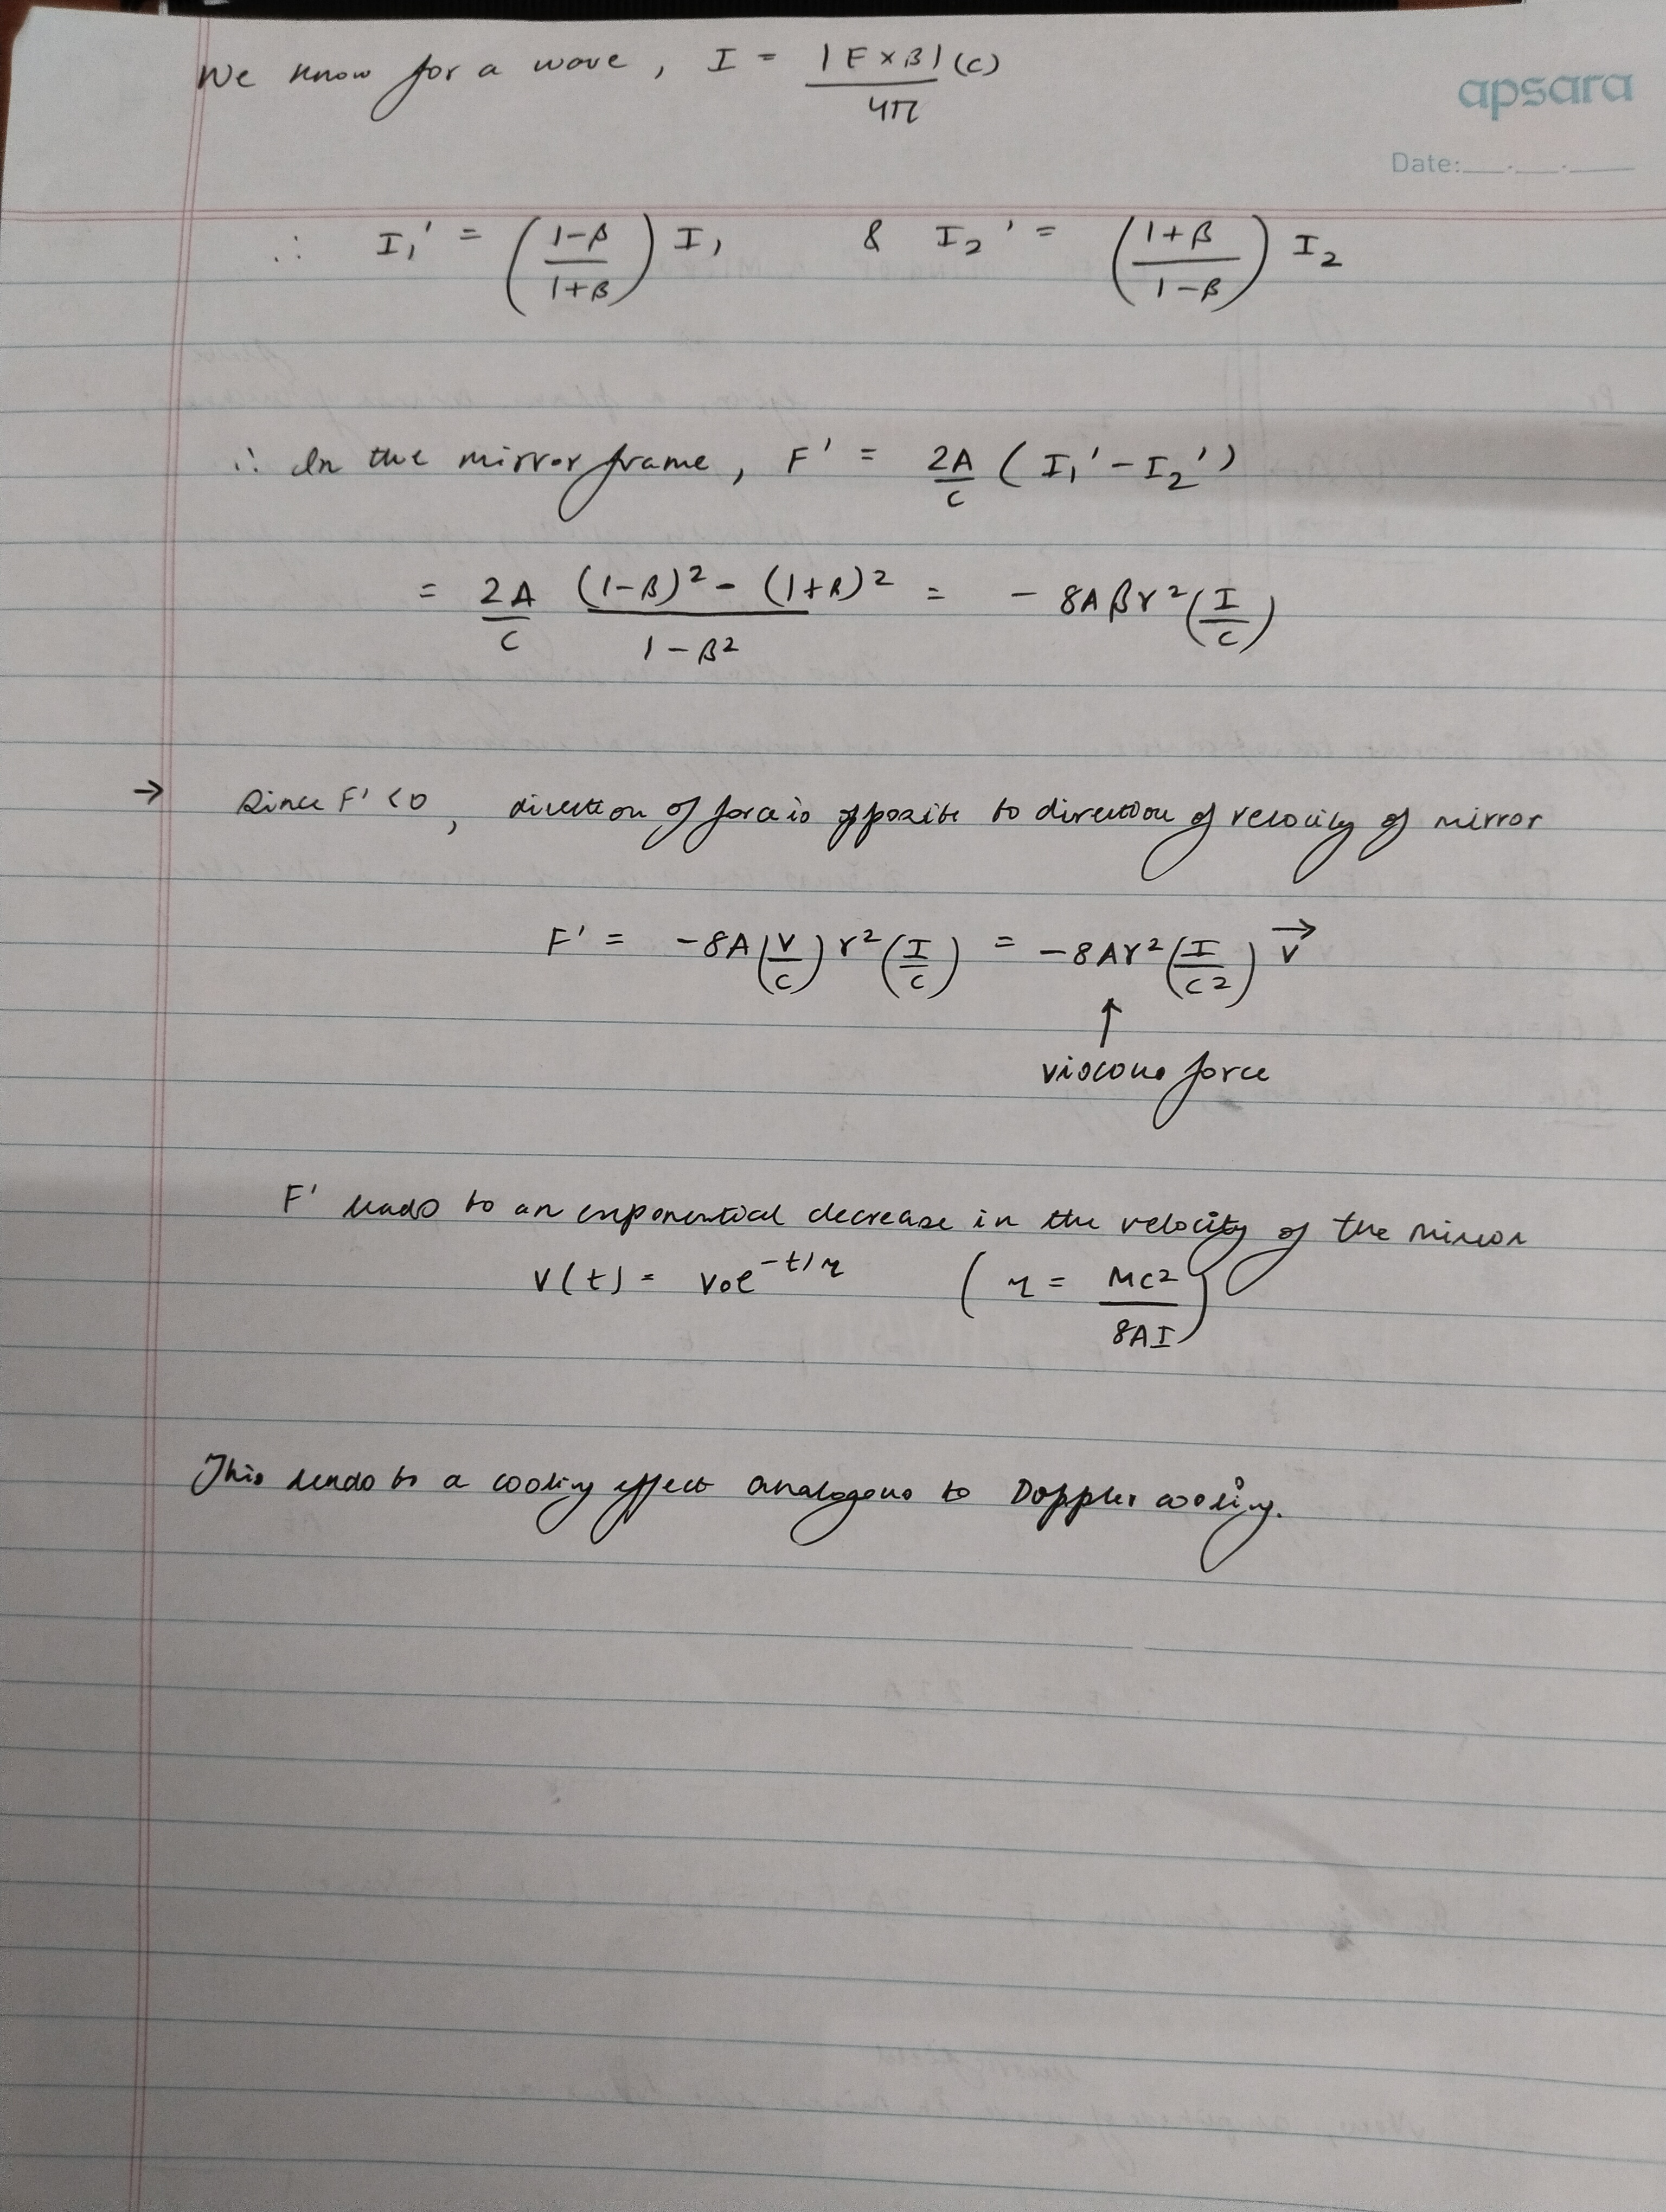 We know for a wave, I = |E × B| (c) / 4π
apsara
Date:__.__.__
∴ I₁' = ((1-β)/(1+β)) I₁ & I₂' = ((1+β)/(1-β)) I₂
∴ In the mirror frame, F' = 2A/c (I₁' - I₂')
= 2A/c ((1-β)² - (1+β)²)/(1-β²) = - 8Aβγ² (I/c)
→ Since F' < 0, direction of force is opposite to direction of velocity of mirror
F' = -8A (v/c) γ² (I/c) = -8Aγ² (I/c²) v⃗
↑
viscous force
F' leads to an exponential decrease in the velocity of the mirror
v(t) = v₀e^(-t/η) (η = Mc²/8AI)
This leads to a cooling effect analogous to Doppler cooling.